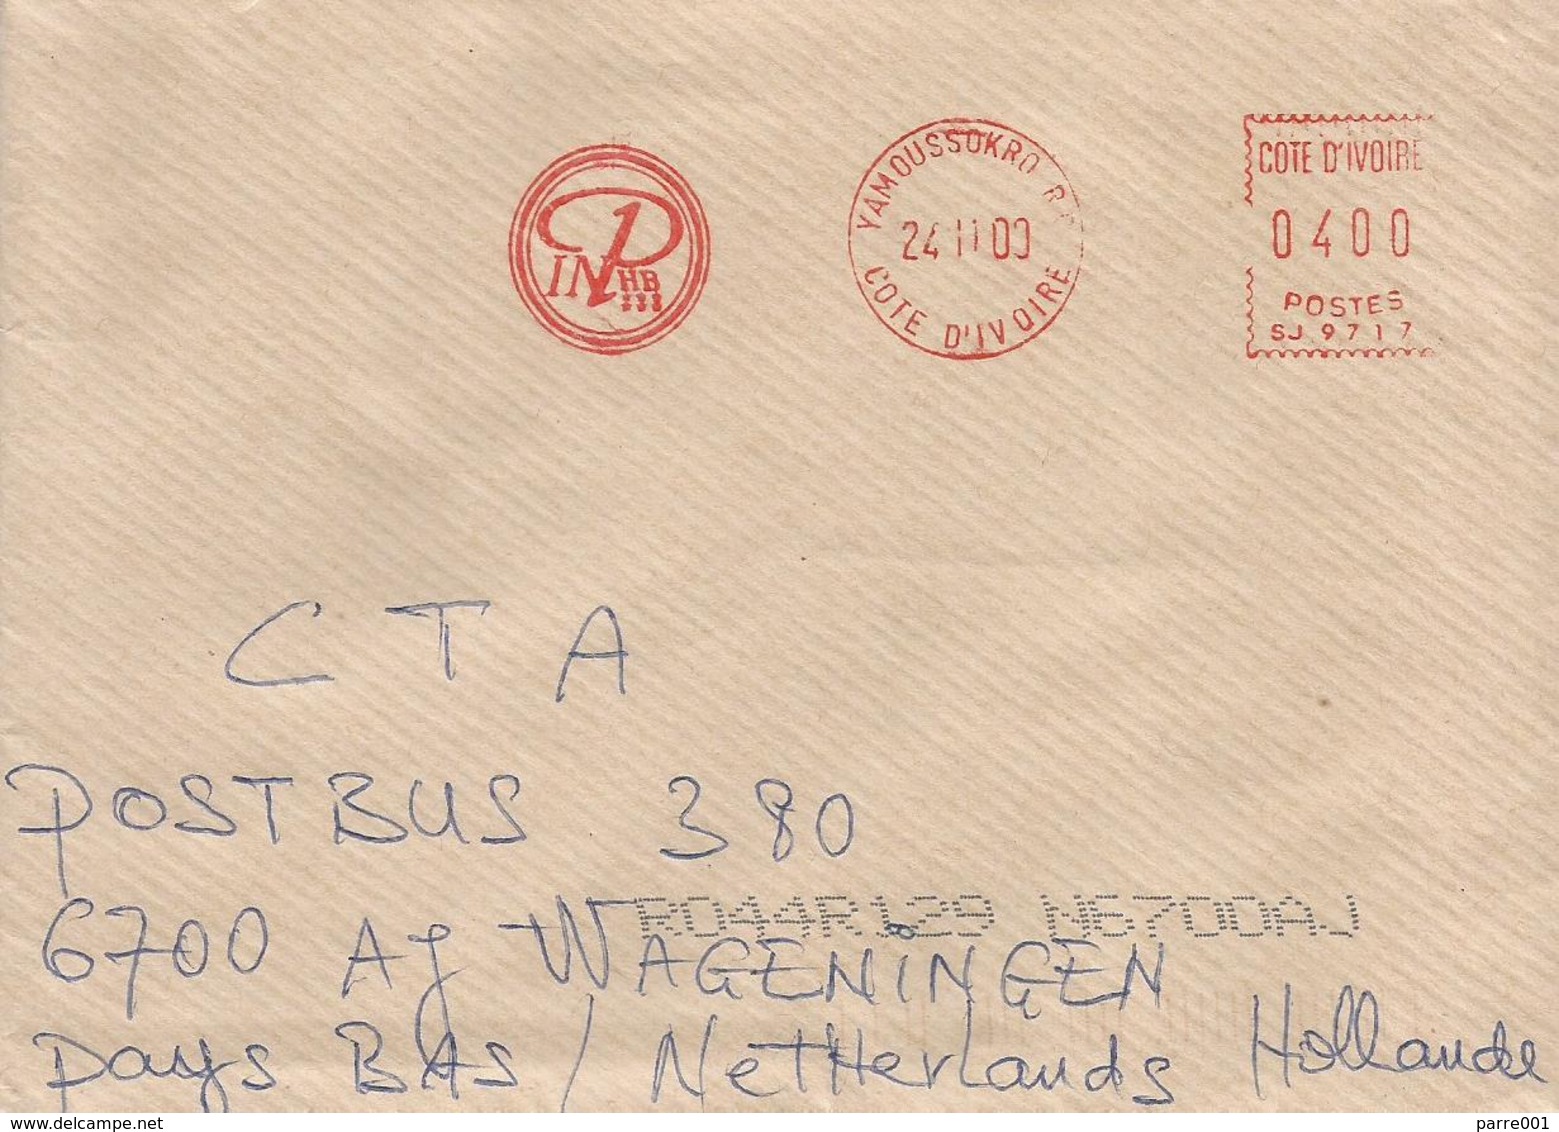 INP HB
YAMOUSSOKRO
24 11 00
COTE D'IVOIRE
COTE D'IVOIRE
0400
POSTES
SJ 9717
CTA
POSTBUS 380
RO44R129 N6700AJ
6700 AJ WAGENINGEN
Pays BAS / NetHerLands Hollande
delcampe.net
parre001